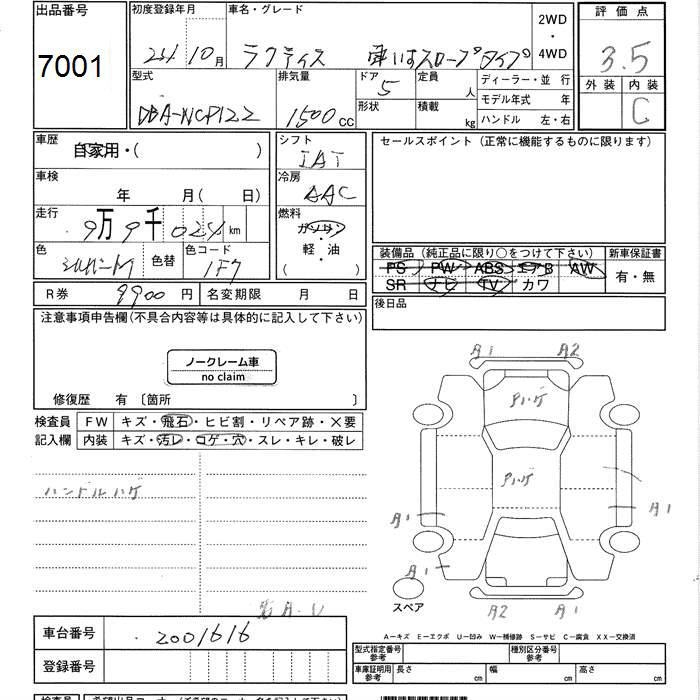 出品番号 初度登録年月 車名・グレード 2WD・4WD 評価点
7001 24年10月 ラクティス 車いすスロープタイプ 3.5
型式 排気量 ドア 5 定員 人 ディーラー・並行 外装 内装
DBA-NCP122 1500cc 形状 積載 kg モデル年式 年 C
ハンドル 左・右
車歴 自家用・( ) シフト IAT セールスポイント(正常に機能するものに限ります)
車検 年 月(日) 冷房 AAC
走行 9万9千024km 燃料 ガソリン・軽・油 ( )
色 シルバーM 色替 色コード 1F7
装備品(純正品に限り○をつけて下さい) 新車保証書
PS PW ABS エアB AW 有・無
SR ナビ TV カワ
R券 9900円 名変期限 月 日 後日品
注意事項申告欄(不具合内容等は具体的に記入して下さい)
ノークレーム車
no claim
修復歴 有〔箇所 〕
検査員 FW キズ・飛石・ヒビ割・リペア跡・×要
記入欄 内装 キズ・汚レ・コゲ・穴・スレ・キレ・破レ
ハンドルハゲ
A1 A2
A1 A1
A1
A2 A1
スペア
A-キズ E-エクボ U-凹み W-補修跡 S-サビ C-腐食 XX-交換済
車台番号 2001616
型式指定番号 参考 種別区分番号 参考
登録番号
車庫証明用 参考 長さ cm 幅 cm 高さ cm